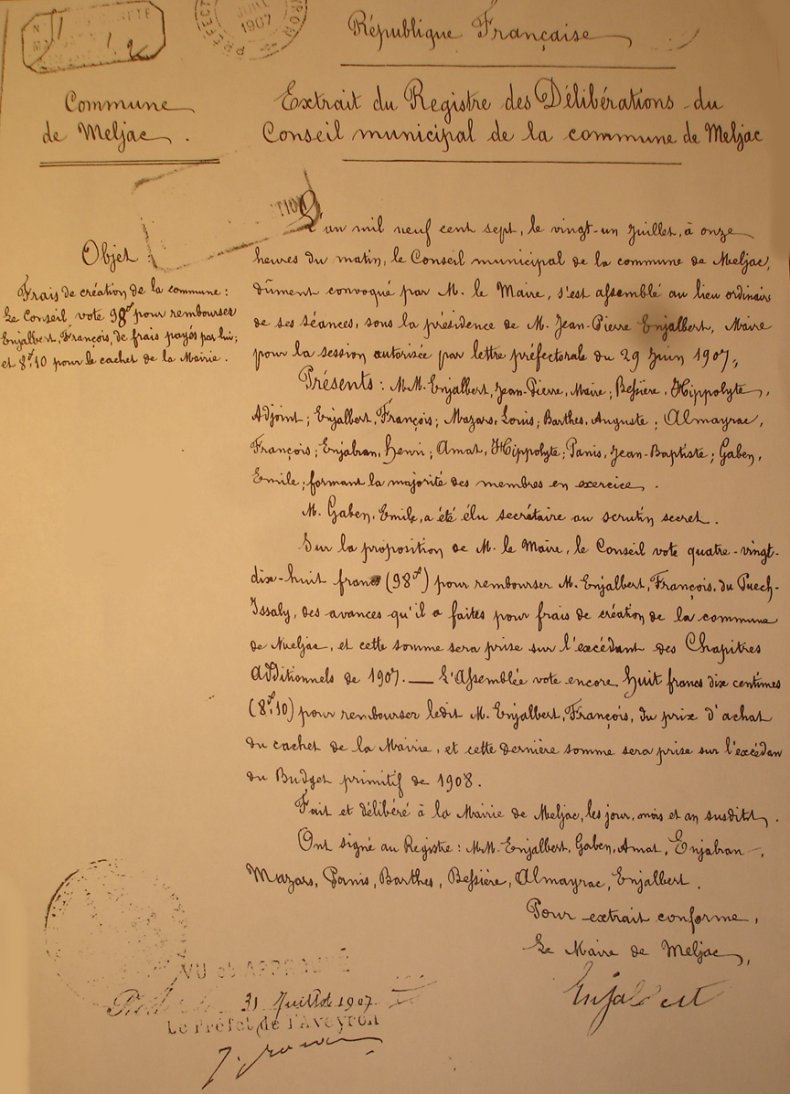 JUIL
1907
PREFECT
République Française
Commune
de Meljac.
Extrait du Registre des Délibérations du
Conseil municipal de la commune de Meljac
Objet:
Frais de création de la commune:
Le Conseil vote 98f pour rembourser
Enjalbert, François, de frais payés par lui;
et 8f,10 pour le cachet de la Mairie.
L'an mil neuf cent sept, le vingt-un Juillet, à onze
heures du matin, le Conseil municipal de la commune de Meljac,
dûment convoqué par M. le Maire, s'est assemblé au lieu ordinaire
de ses séances, sous la présidence de M. Jean-Pierre Enjalbert, Maire
pour la session autorisée par lettre préfectorale du 29 Juin 1907.
Présents: MM. Enjalbert, Jean-Pierre, Maire; Bessière, Hippolyte,
Adjoint; Enjalbert, François; Mazars, Louis; Barthes, Auguste; Almayrac,
François; Enjabran, Henri; Amat, Hippolyte; Panis, Jean-Baptiste; Gaben,
Emile; formant la majorité des membres en exercice.
M. Gaben, Emile, a été élu secrétaire au scrutin secret.
Sur la proposition de M. le Maire, le Conseil vote quatre-vingt-
dix-huit francs (98f) pour rembourser M. Enjalbert, François, du Puech-
Issaly, des avances qu'il a faites pour frais de création de la commune
de Meljac, et cette somme sera prise sur l'excédant des Chapitres
additionnels de 1907. — L'Assemblée vote encore huit francs dix centimes
(8f,10) pour rembourser ledit M. Enjalbert, François, du prix d'achat
du cachet de la Mairie, et cette dernière somme sera prise sur l'excédan
du Budget primitif de 1908.
Fait et délibéré à la Mairie de Meljac, les jour, mois et an susdits.
Ont signé au Registre: MM. Enjalbert, Gaben, Amat, Enjabran,
Mazars, Panis, Barthes, Bessière, Almayrac, Enjalbert.
Pour extrait conforme,
Le Maire de Meljac,
Enjalbert
VU et APPROUVÉ
31 Juillet 1907
Le Préfet de l'Aveyron